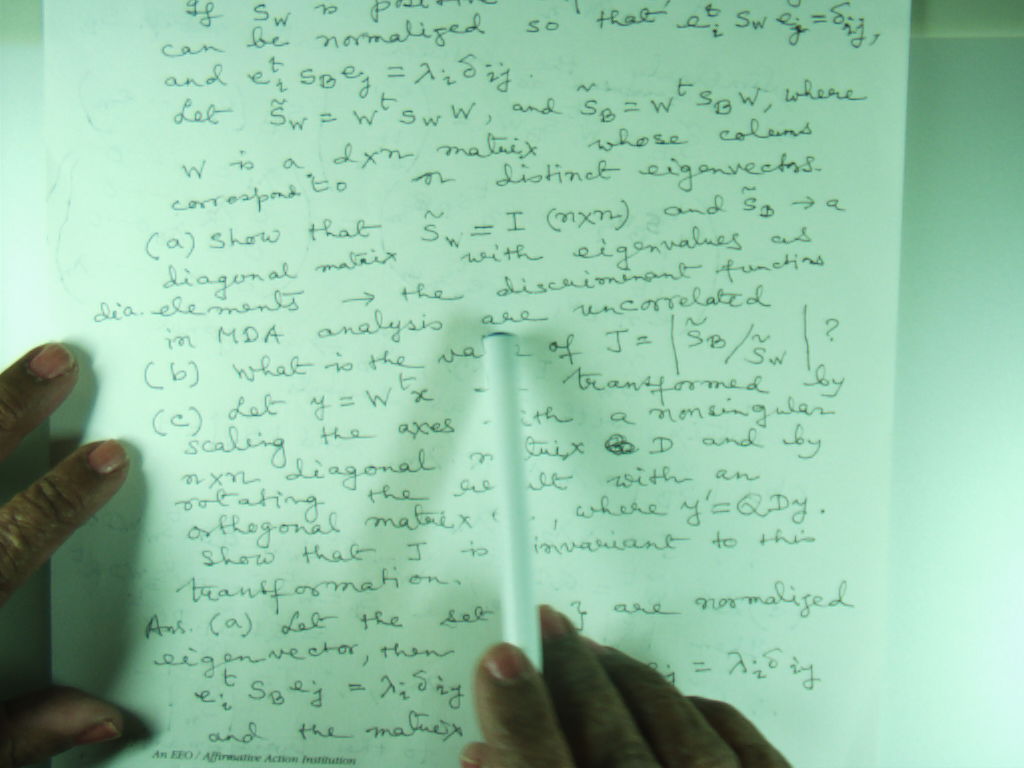 If S_W is positive
can be normalized so that e_i^t S_W e_j = δ_ij,
and e_i^t S_B e_j = λ_i δ_ij.
Let S̃_W = W^t S_W W, and S̃_B = W^t S_B W, where
W is a d×n matrix whose colums
correspond to n distinct eigenvectors.
(a) Show that S̃_W = I (n×n) and S̃_B → a
diagonal matrix with eigenvalues as
dia. elements → the discriminant functins
in MDA analysis are uncorrelated
(b) What is the of J = | S̃_B / S̃_W | ?
(c) Let y = W^t x transformed by
scaling the axes with a nonsingular
n×n diagonal D and by
rotating the with an
orthogonal matrix , where y' = QDy.
Show that J is invariant to this
transformation.
Ans. (a) Let the set } are normalized
eigenvector, then
e_i^t S_B e_j = λ_i δ_ij e_j = λ_i δ_ij
and the matrix
An EEO / Affirmative Action Institution